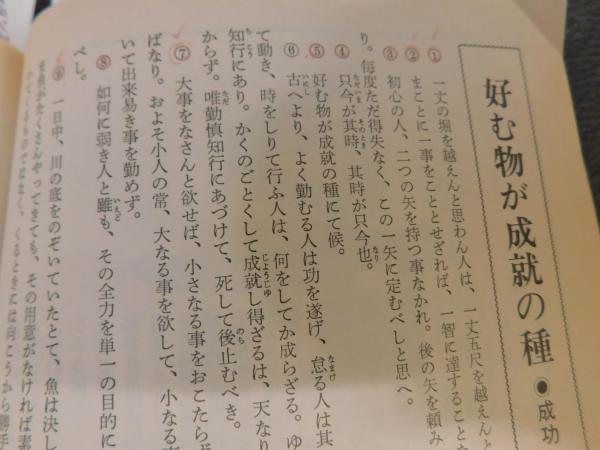 好む物が成就の種 ●成功
① 一丈の堀を越えんと思わん人は、一丈五尺を越えんと
② まことに一事をこととせざれば、一智に達すること
③ 初心の人、二つの矢を持つ事なかれ。後の矢を頼み
り。毎度ただ得失なく、この一矢に定むべしと思へ。
④ 只今が其時、其時が只今也。
⑤ 好む物が成就の種にて候。
⑥ 古へより、よく勤むる人は功を遂げ、怠る人は其
て動き、時をしりて行ふ人は、何をしてか成らざる。ゆ
知行にあり。かくのごとくして成就し得ざるは、天なり
からず。唯勤慎知行にあづけて、死して後止むべき。
⑦ 大事をなさんと欲せば、小さなる事をおこたらず
ばなり。およそ小人の常、大なる事を欲して、小なる
いて出来易き事を勤めず。
⑧ 如何に弱き人と雖も、その全力を単一の目的に
べし。
⑨ 一日中、川の底をのぞいていたとて、魚は決し
ま魚がたくさんやってきても、その用意がなければ素
くるものではなく、くるときには向こうから勝手